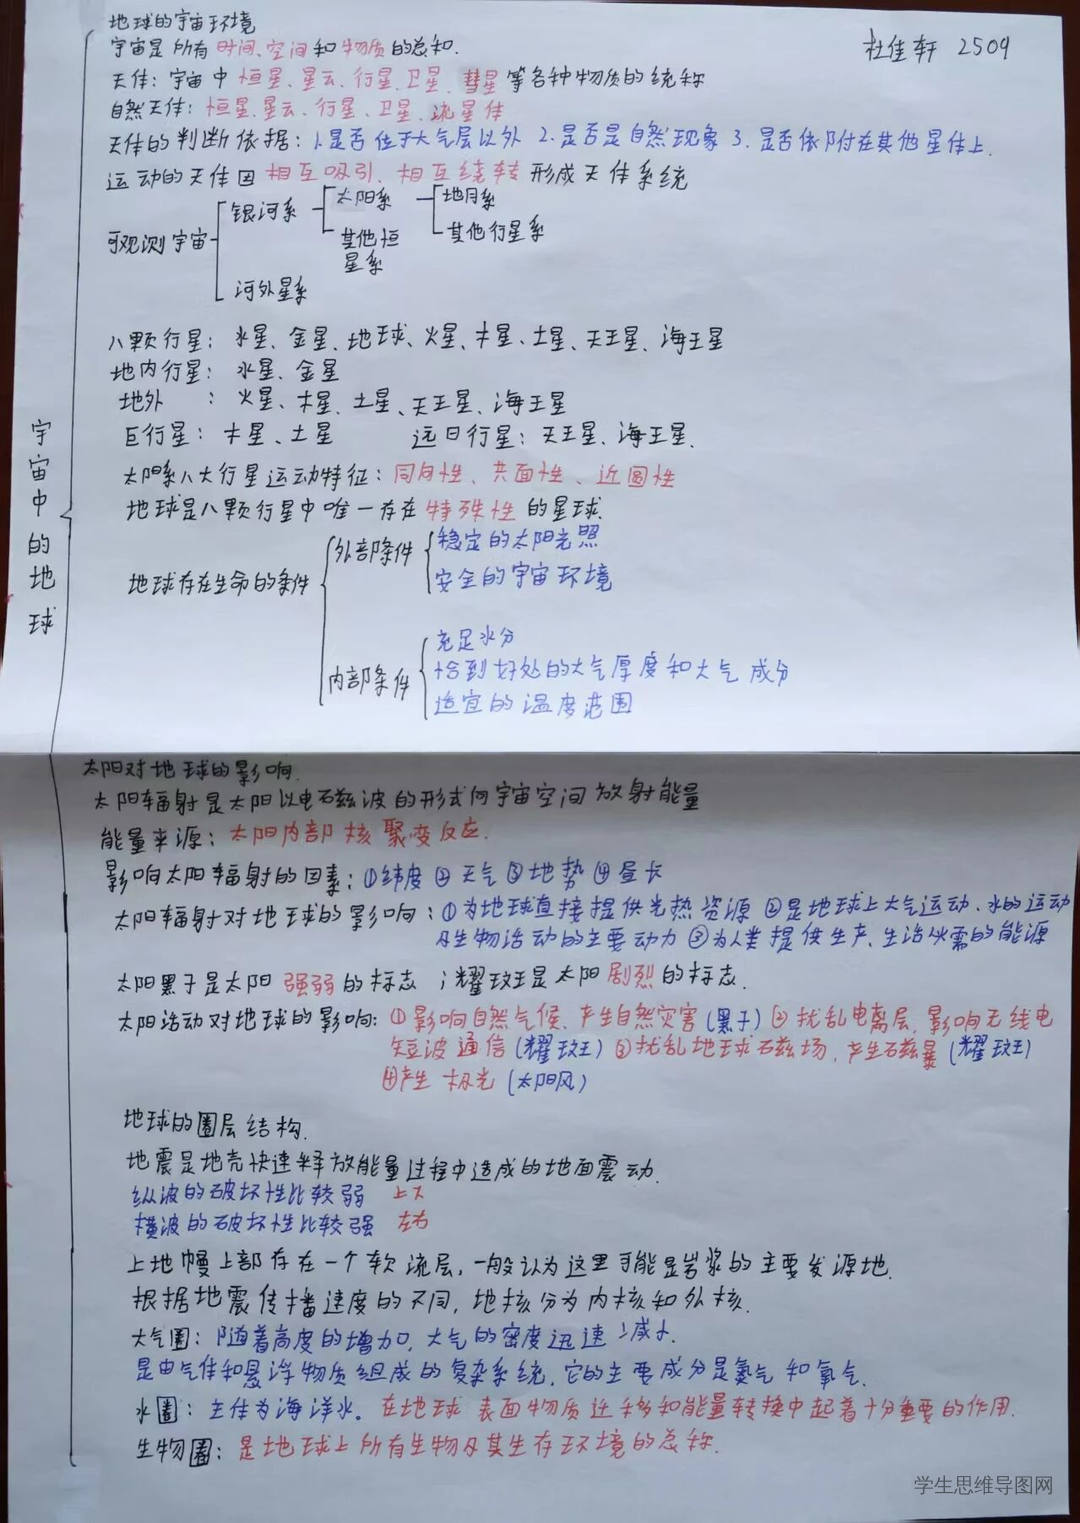 杜佳轩 2509
宇宙中的地球
地球的宇宙环境
宇宙是所有时间、空间和物质的总和.
天体：宇宙中恒星、星云、行星、卫星、彗星等各种物质的统称
自然天体：恒星、星云、行星、卫星、流星体
天体的判断依据：1.是否位于大气层以外 2.是否是自然现象 3.是否依附在其他星体上.
运动的天体因相互吸引、相互绕转形成天体系统
可观测宇宙
银河系
太阳系
地月系
其他行星系
其他恒
星系
河外星系
八颗行星：水星、金星、地球、火星、木星、土星、天王星、海王星
地内行星：水星、金星
地外：火星、木星、土星、天王星、海王星
巨行星：木星、土星 远日行星：天王星、海王星.
太阳系八大行星运动特征：同向性、共面性、近圆性
地球是八颗行星中唯一存在特殊性的星球.
地球存在生命的条件
外部条件
稳定的太阳光照
安全的宇宙环境
内部条件
充足水分
恰到好处的大气厚度和大气成分
适宜的温度范围
太阳对地球的影响.
太阳辐射是太阳以电磁波的形式向宇宙空间放射能量
能量来源：太阳内部核聚变反应.
影响太阳辐射的因素：①纬度②天气③地势④昼长
太阳辐射对地球的影响：①为地球直接提供光热资源 ②是地球上大气运动、水的运动
及生物活动的主要动力 ③为人类提供生产、生活所需的能源
太阳黑子是太阳强弱的标志；耀斑是太阳剧烈的标志.
太阳活动对地球的影响：①影响自然气候、产生自然灾害(黑子)②扰乱电离层,影响无线电
短波通信(耀斑)③扰乱地球磁场,产生磁暴(耀斑)
④产生极光(太阳风)
地球的圈层结构.
地震是地壳快速释放能量过程中造成的地面震动.
纵波的破坏性比较弱 上下
横波的破坏性比较强 左右
上地幔上部存在一个软流层,一般认为这里可能是岩浆的主要发源地.
根据地震传播速度的不同,地核分为内核和外核.
大气圈：随着高度的增加,大气的密度迅速减小.
是由气体和悬浮物质组成的复杂系统,它的主要成分是氮气和氧气.
水圈：主体为海洋水。在地球表面物质迁移和能量转换中起着十分重要的作用.
生物圈：是地球上所有生物及其生存环境的总称.
学生思维导图网